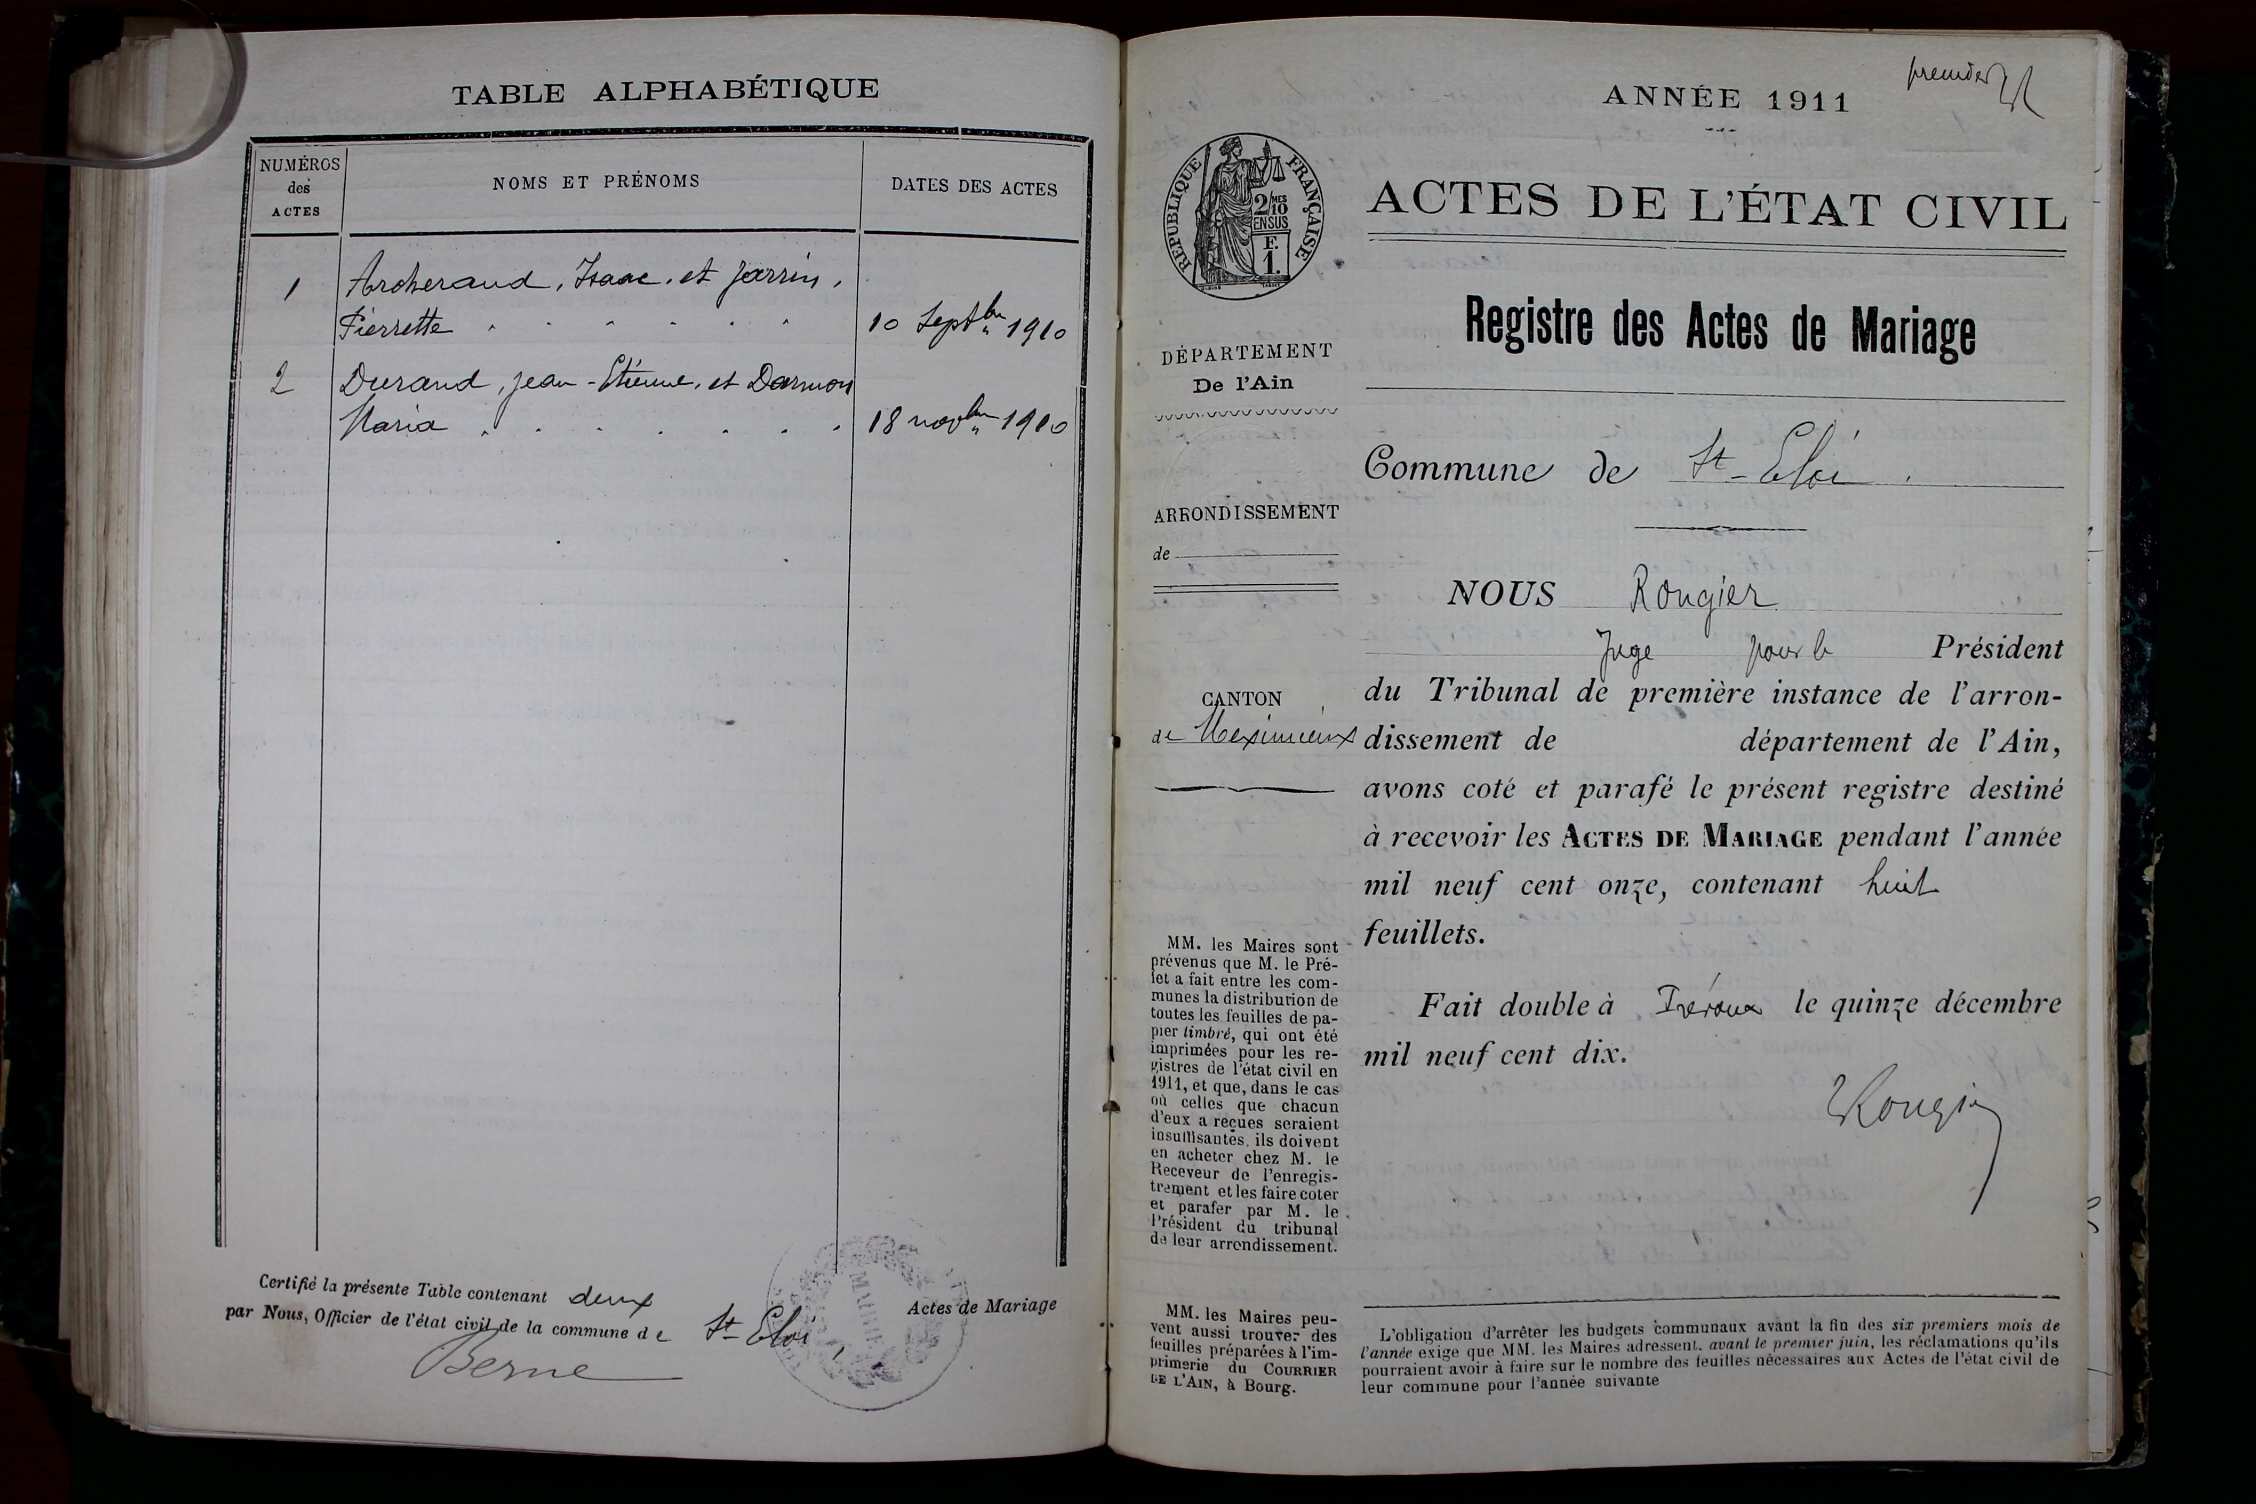 TABLE ALPHABÉTIQUE
NUMÉROS
des
ACTES
NOMS ET PRÉNOMS
DATES DES ACTES
1
Archeraud, Isaac, et Jarrin,
Pierrette
10 Septbre 1910
2
Durand, Jean-Etienne, et Darmon
Maria
18 novbre 1910
Certifié la présente Table contenant deux Actes de Mariage
par Nous, Officier de l'état civil de la commune de St-Eloi,
Berne
MAIRIE
premier
ANNÉE 1911
RÉPUBLIQUE FRANÇAISE
2/MES
10
EN SUS
F.
1.
ACTES DE L'ÉTAT CIVIL
Registre des Actes de Mariage
DÉPARTEMENT
De l'Ain
ARRONDISSEMENT
de
CANTON
de Meximieux
MM. les Maires sont
prévenus que M. le Pré-
fet a fait entre les com-
munes la distribution de
toutes les feuilles de pa-
pier timbré, qui ont été
imprimées pour les re-
gistres de l'état civil en
1911, et que, dans le cas
où celles que chacun
d'eux a reçues seraient
insuffisantes, ils doivent
en acheter chez M. le
Receveur de l'enregis-
trement et les faire coter
et parafer par M. le
Président du tribunal
de leur arrondissement.
MM. les Maires peu-
vent aussi trouver des
feuilles préparées à l'im-
primerie du COURRIER
DE L'AIN, à Bourg.
Commune de St-Eloi.
NOUS Rougier
Juge pour le Président
du Tribunal de première instance de l'arron-
dissement de département de l'Ain,
avons coté et parafé le présent registre destiné
à recevoir les ACTES DE MARIAGE pendant l'année
mil neuf cent onze, contenant huit
feuillets.
Fait double à Trévoux le quinze décembre
mil neuf cent dix.
Rougier
L'obligation d'arrêter les budgets communaux avant la fin des six premiers mois de
l'année exige que MM. les Maires adressent, avant le premier juin, les réclamations qu'ils
pourraient avoir à faire sur le nombre des feuilles nécessaires aux Actes de l'état civil de
leur commune pour l'année suivante